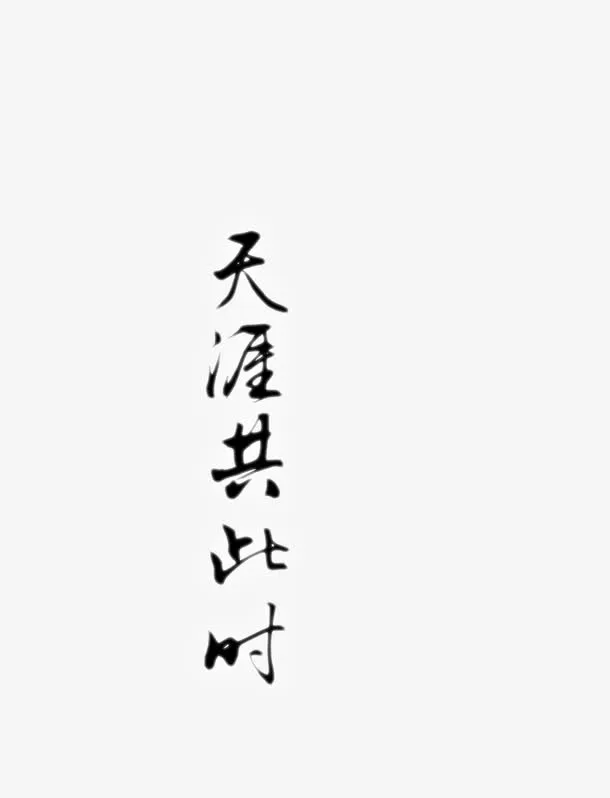 天涯共此时